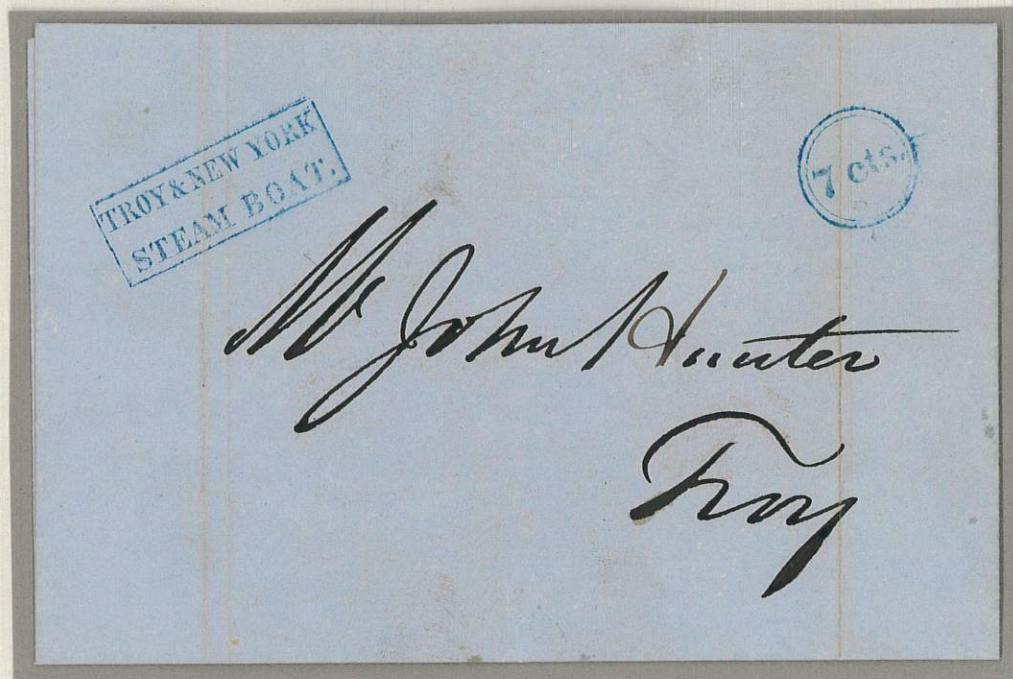 TROY & NEW YORK
STEAM BOAT.
7 cts.
Mr John Hunter
Troy